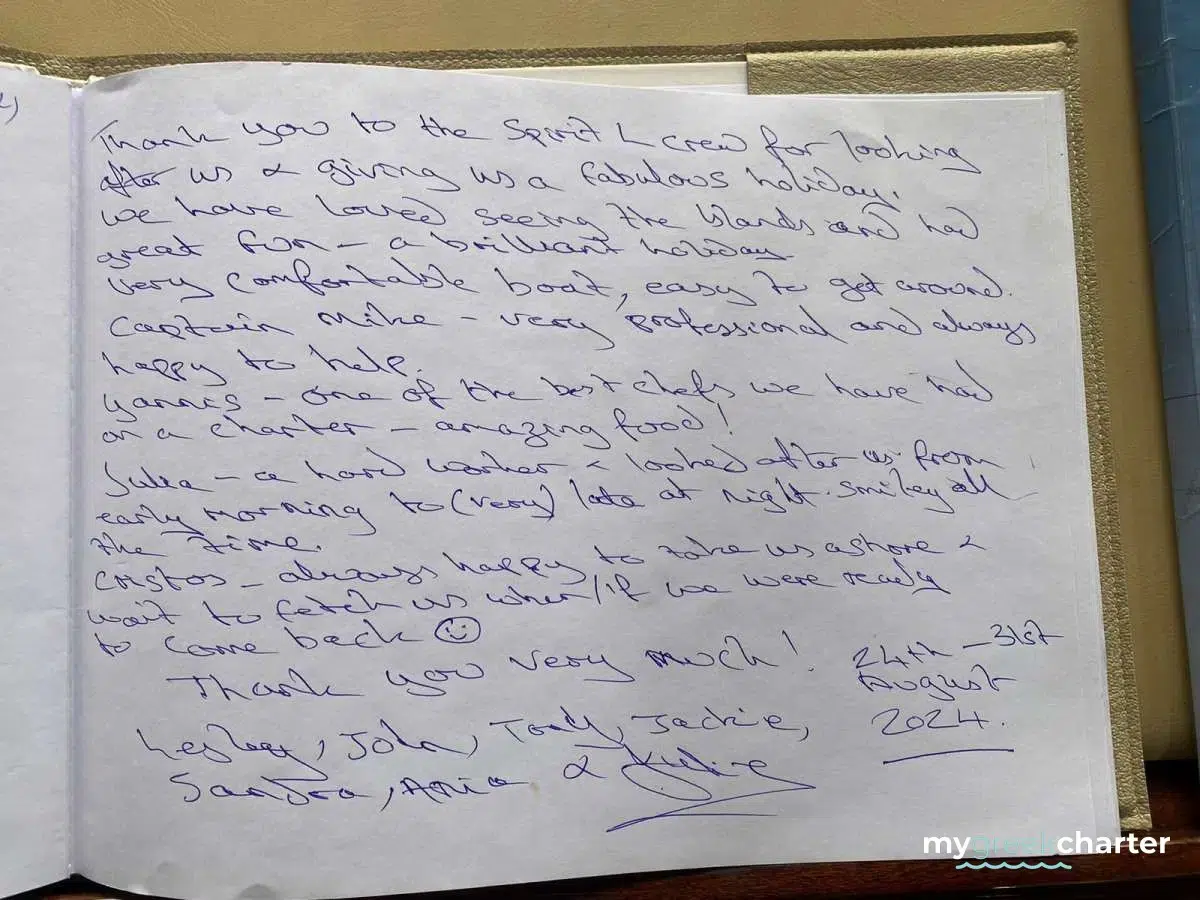 Thank you to the Spirit L crew for looking
after us & giving us a fabulous holiday.
We have loved seeing the Islands and had
great fun – a brilliant holiday.
Very comfortable boat, easy to get around.
Captain Mike – very professional and always
happy to help.
Yannis – one of the best chefs we have had
on a charter – amazing food!
Julia – a hard worker & looked after us from
early morning to (very) late at night. Smiley all
the time.
Cristos – always happy to take us ashore &
wait to fetch us when/if we were ready
to come back ☺
Thank you very much!
24th – 31st
August
2024.
Lesley, John, Tony, Jackie,
Sandra, Ania & Julie
mygreekcharter